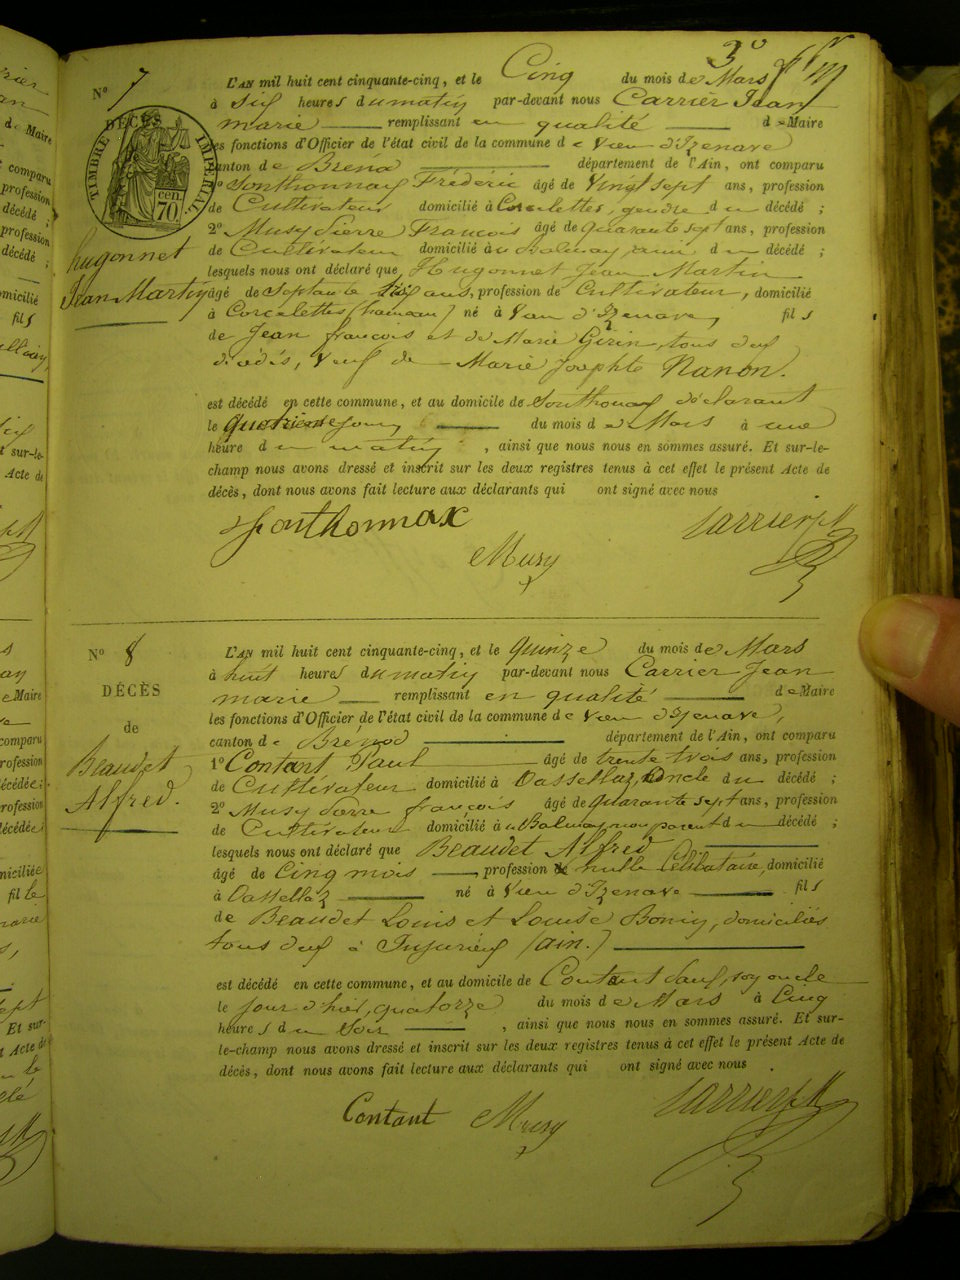 3e
N° 7
L'AN mil huit cent cinquante-cinq, et le Cinq du mois de Mars
à six heures du matin par-devant nous Carrier Jean
marie remplissant en qualité de Maire
les fonctions d'Officier de l'état civil de la commune de Vieu d'Izenave
canton de Brénod département de l'Ain, ont comparu
1° Sonthonnax Frédéric âgé de Vingt sept ans, profession
de Cultivateur domicilié à Corcelettes, gendre du décédé ;
2° Musy Pierre François âgé de quarante sept ans, profession
de Cultivateur domicilié à Balmay, ami du décédé ;
lesquels nous ont déclaré que Hugonnet Jean Martin
âgé de Septante six ans, profession de Cultivateur, domicilié
à Corcelettes (hameau) né à Vieu d'Izenave, fils
de Jean françois et de Marie Girin, tous deux
décédés, Veuf de Marie Josephte Nanon.
est décédé en cette commune, et au domicile de Sonthonax déclarant
le du mois de Mars à une
heure du matin, ainsi que nous nous en sommes assuré. Et sur-le-
champ nous avons dressé et inscrit sur les deux registres tenus à cet effet le présent Acte de
décès, dont nous avons fait lecture aux déclarants qui ont signé avec nous
Sonthonnax
Musy
Carrier JM
TIMBRE IMPERIAL
DÉCÈS
70 cen.
hugonnet
Jean Martin
N° 8
DÉCÈS
de
Beaudet
Alfred.
L'AN mil huit cent cinquante-cinq, et le quinze du mois de Mars
à huit heures du matin par-devant nous Carrier Jean
marie remplissant en qualité de Maire
les fonctions d'Officier de l'état civil de la commune de Vieu d'Izenave,
canton de Brénod département de l'Ain, ont comparu
1° Contant Paul âgé de trente trois ans, profession
de Cultivateur domicilié à Oassellaz, Oncle du décédé ;
2° Musy Pierre françois âgé de quarante sept ans, profession
de Cultivateur domicilié à Balmay non parent du décédé ;
lesquels nous ont déclaré que Beaudet Alfred
âgé de Cinq mois, profession nulle Célibataire, domicilié
à Oassellaz né à Vieu d'Izenave fils
de Beaudet Louis et Louise Bonin, domiciliés
tous deux à Injurieux (ain.)
est décédé en cette commune, et au domicile de Contant Paul, son oncle
le jour d'hier, quatorze du mois de Mars à Cinq
heures du Soir, ainsi que nous nous en sommes assuré. Et sur-
le-champ nous avons dressé et inscrit sur les deux registres tenus à cet effet le présent Acte de
décès, dont nous avons fait lecture aux déclarants qui ont signé avec nous.
Contant
Musy
Carrier JM